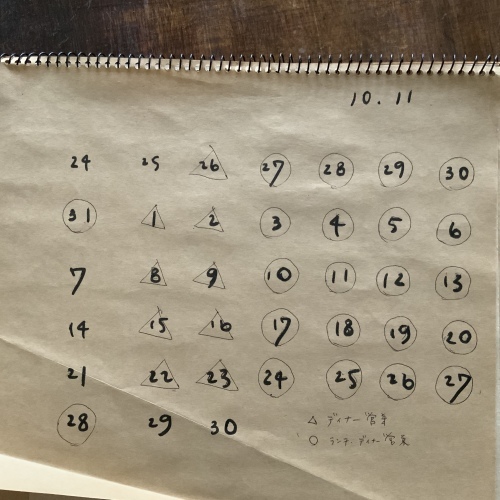 10. 11
24 25 26 27 28 29 30
31 1 2 3 4 5 6
7 8 9 10 11 12 13
14 15 16 17 18 19 20
21 22 23 24 25 26 27
28 29 30
△ ディナー営業
○ ランチ・ディナー営業